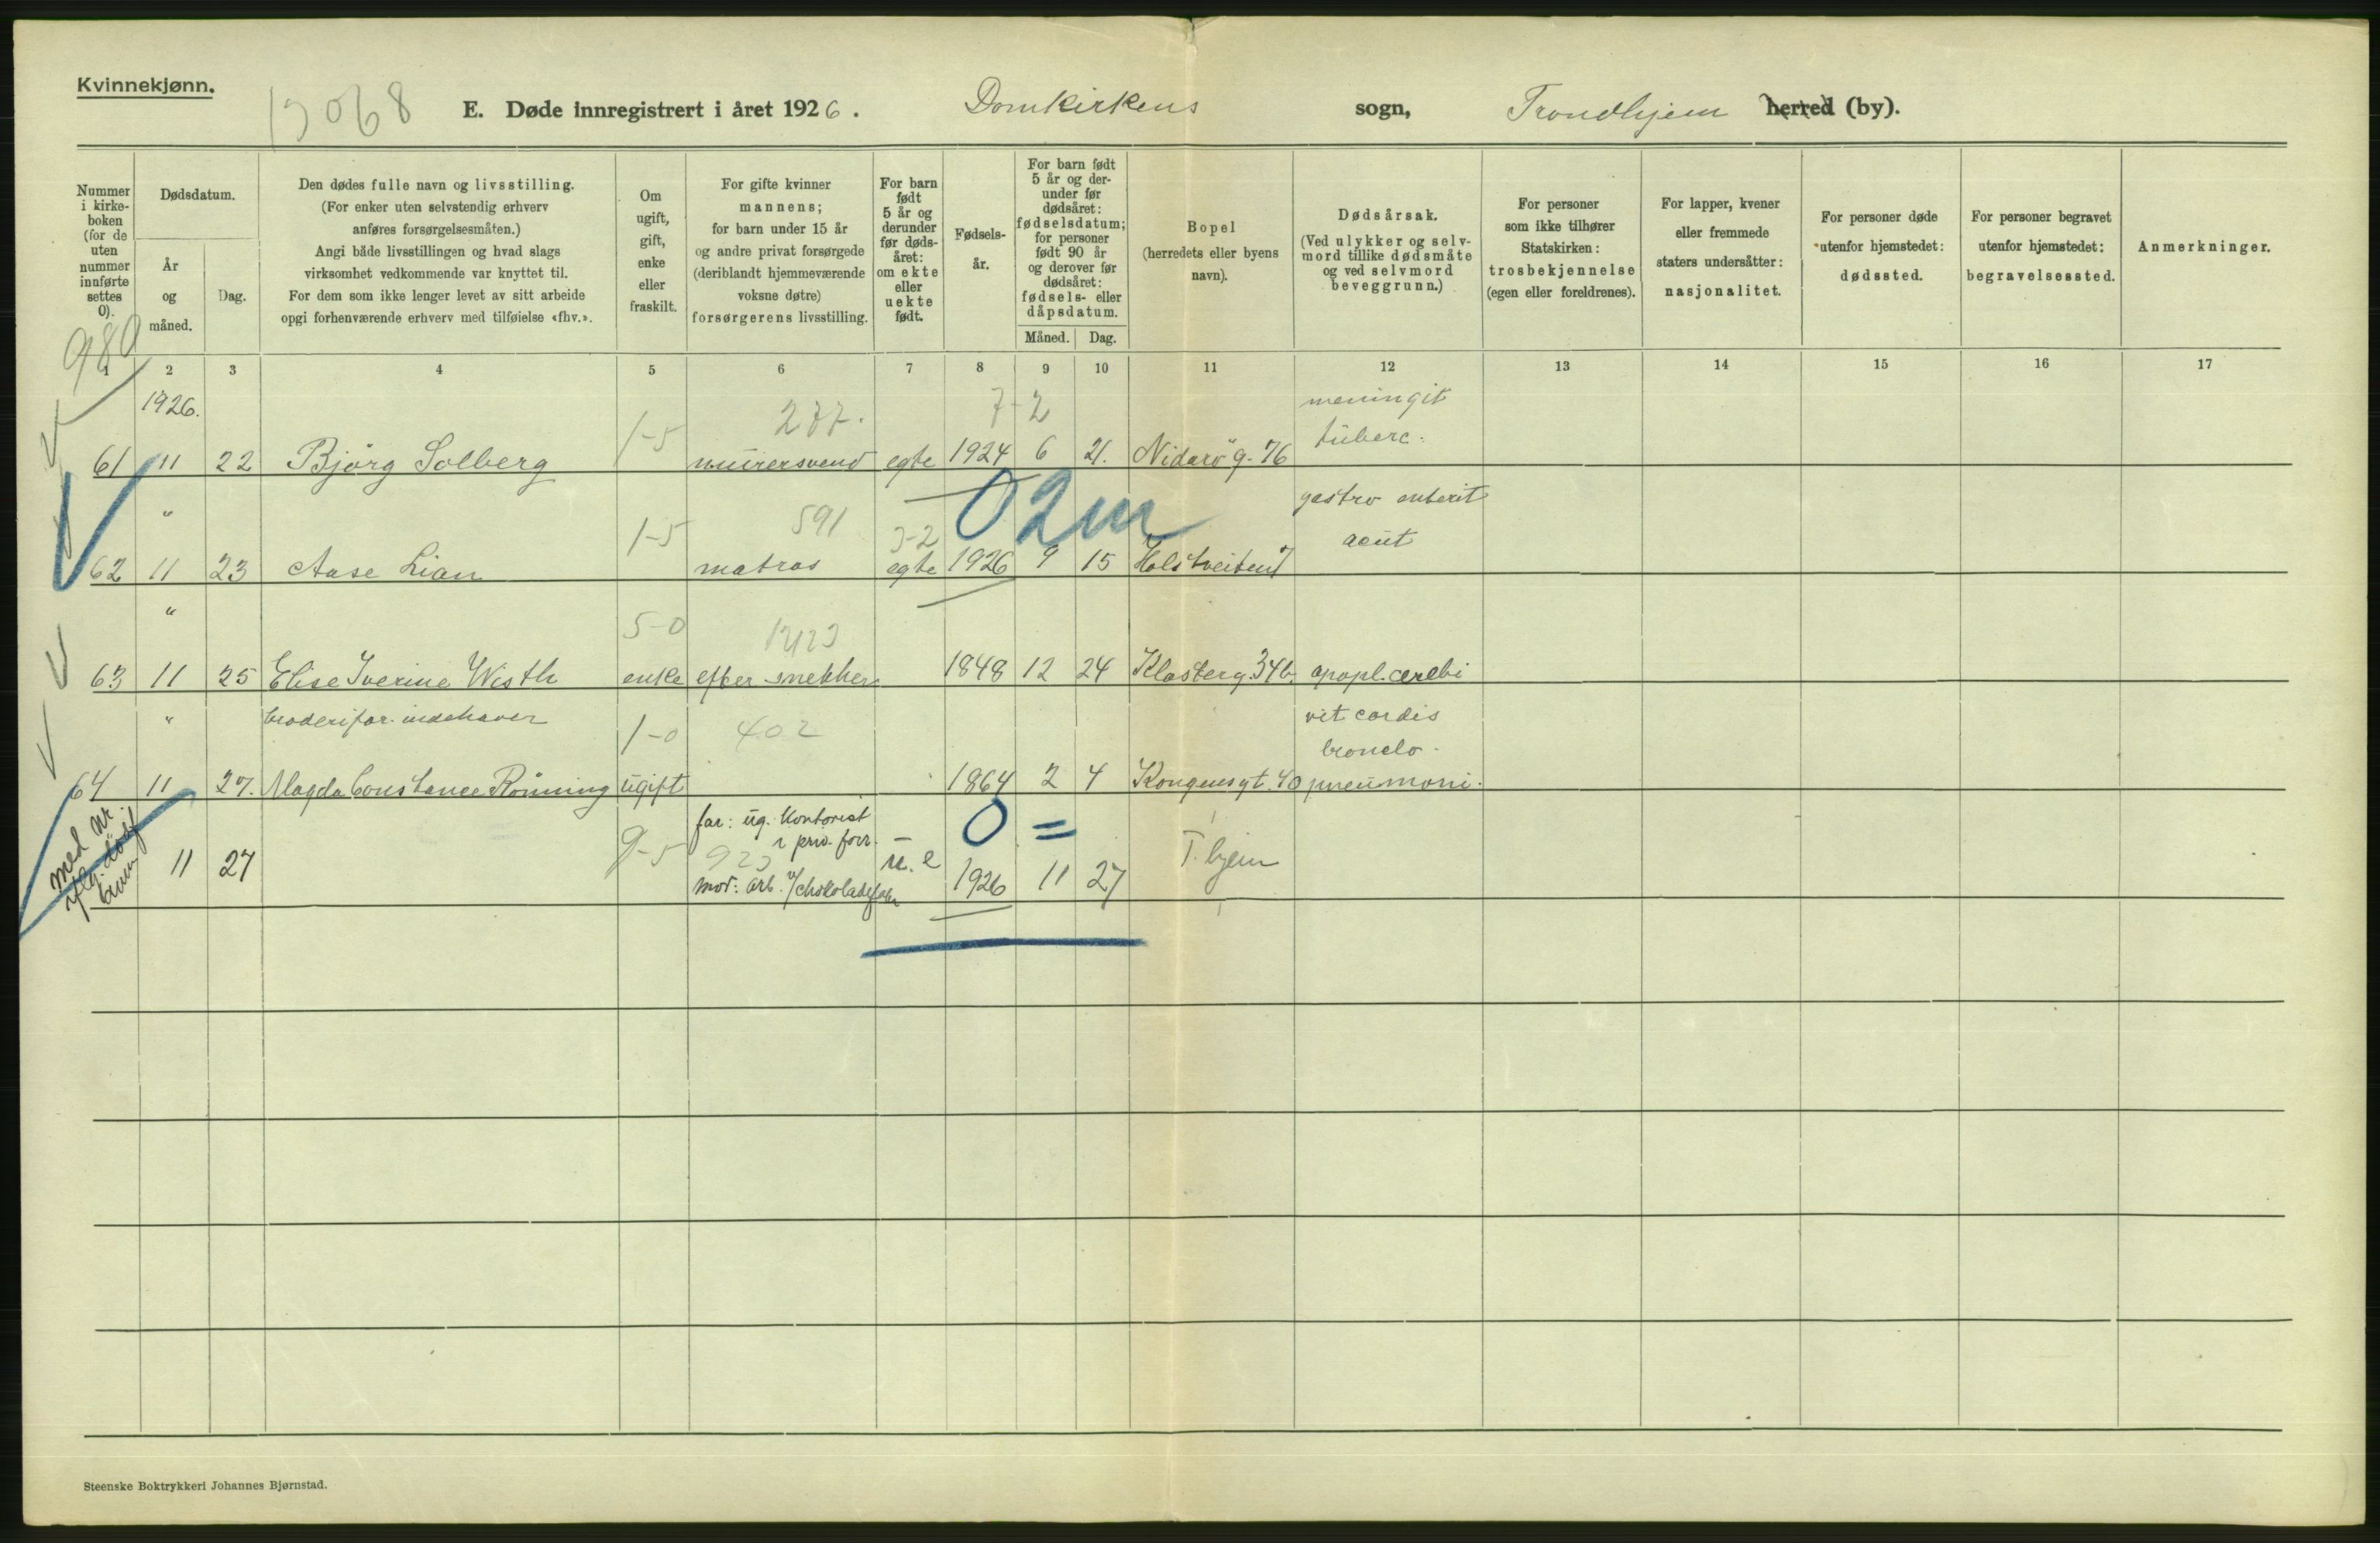 Kvinnekjønn.
E. Døde innregistrert i året 1926. Domkirkens sogn, Trondhjem herred (by).
Nummer i kirkeboken (for de uten nummer innførte settes 0).
Dødsdatum.
År og måned.
Dag.
Den dødes fulle navn og livsstilling.
(For enker uten selvstendig erhverv
anføres forsørgelsesmåten.)
Angi både livsstillingen og hvad slags
virksomhet vedkommende var knyttet til.
For dem som ikke lenger levet av sitt arbeide
opgi forhenværende erhverv med tilføielse «fhv.».
Om
ugift,
gift,
enke
eller
fraskilt.
For gifte kvinner
mannens;
for barn under 15 år
og andre privat forsørgede
(deriblandt hjemmeværende
voksne døtre)
forsørgerens livsstilling.
For barn
født
5 år og
derunder
før døds-
året:
om ekte
eller
uekte
født.
Fødsels-
år.
For barn født
5 år og der-
under før
dødsåret:
fødselsdatum;
for personer
født 90 år
og derover før
dødsåret:
fødsels- eller
dåpsdatum.
Måned. Dag.
Bopel
(herredets eller byens
navn).
Dødsårsak.
(Ved ulykker og selv-
mord tillike dødsmåte
og ved selvmord
beveggrunn.)
For personer
som ikke tilhører
Statskirken:
trosbekjennelse
(egen eller foreldrenes).
For lapper, kvener
eller fremmede
staters undersåtter:
nasjonalitet.
For personer døde
utenfor hjemstedet:
dødssted.
For personer begravet
utenfor hjemstedet:
begravelsessted.
Anmerkninger.
980
1 2 3 4 5 6 7 8 9 10 11 12 13 14 15 16 17
1926. 1-5 277. 7-2 meningit
tüberc.
61 11 22 Bjørg Solberg mürersvend egte 1924 6 21. Nidarö g. 76
" 1-5 591 3-2 02m gastro enterit
acüt
62 11 23 Aase Lian matros egte 1926 9 15 Holstveiten 7
" 5-0
63 11 25 Elise Iverine Wisth enke efter snekker 1848 12 24 Klosterg. 34b. apopl. cerebi
" broderifor. indehaver 1-0 402 vit cordis
broncho-
64 11 27. Magda Constance Rönning ügift 1864 2 4 Kongensgt. 40 pneümoni.
far: üg. Kontorist
i priv. forr. 0 =
11 27 9-5 923 ü. e 1926 11 27 T.hjem
mor: arb. v/chokoladefabr
med nr
dödf.
barn
Steenske Boktrykkeri Johannes Bjørnstad.